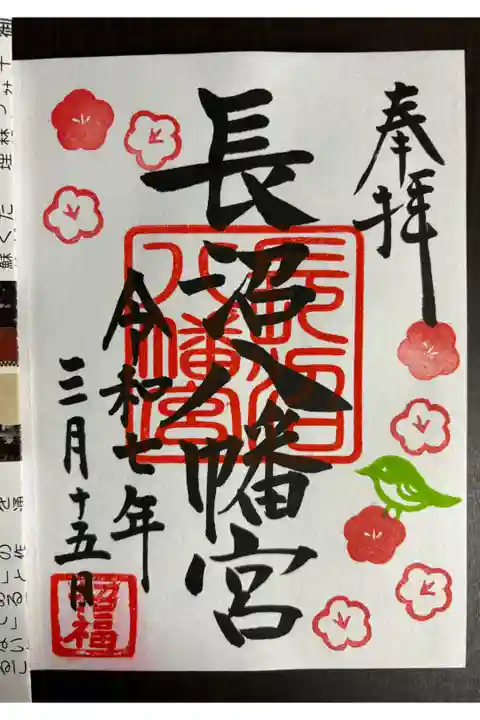 奉拝
長沼八幡宮
令和七年
三月十五日
長沼八幡宮
招福